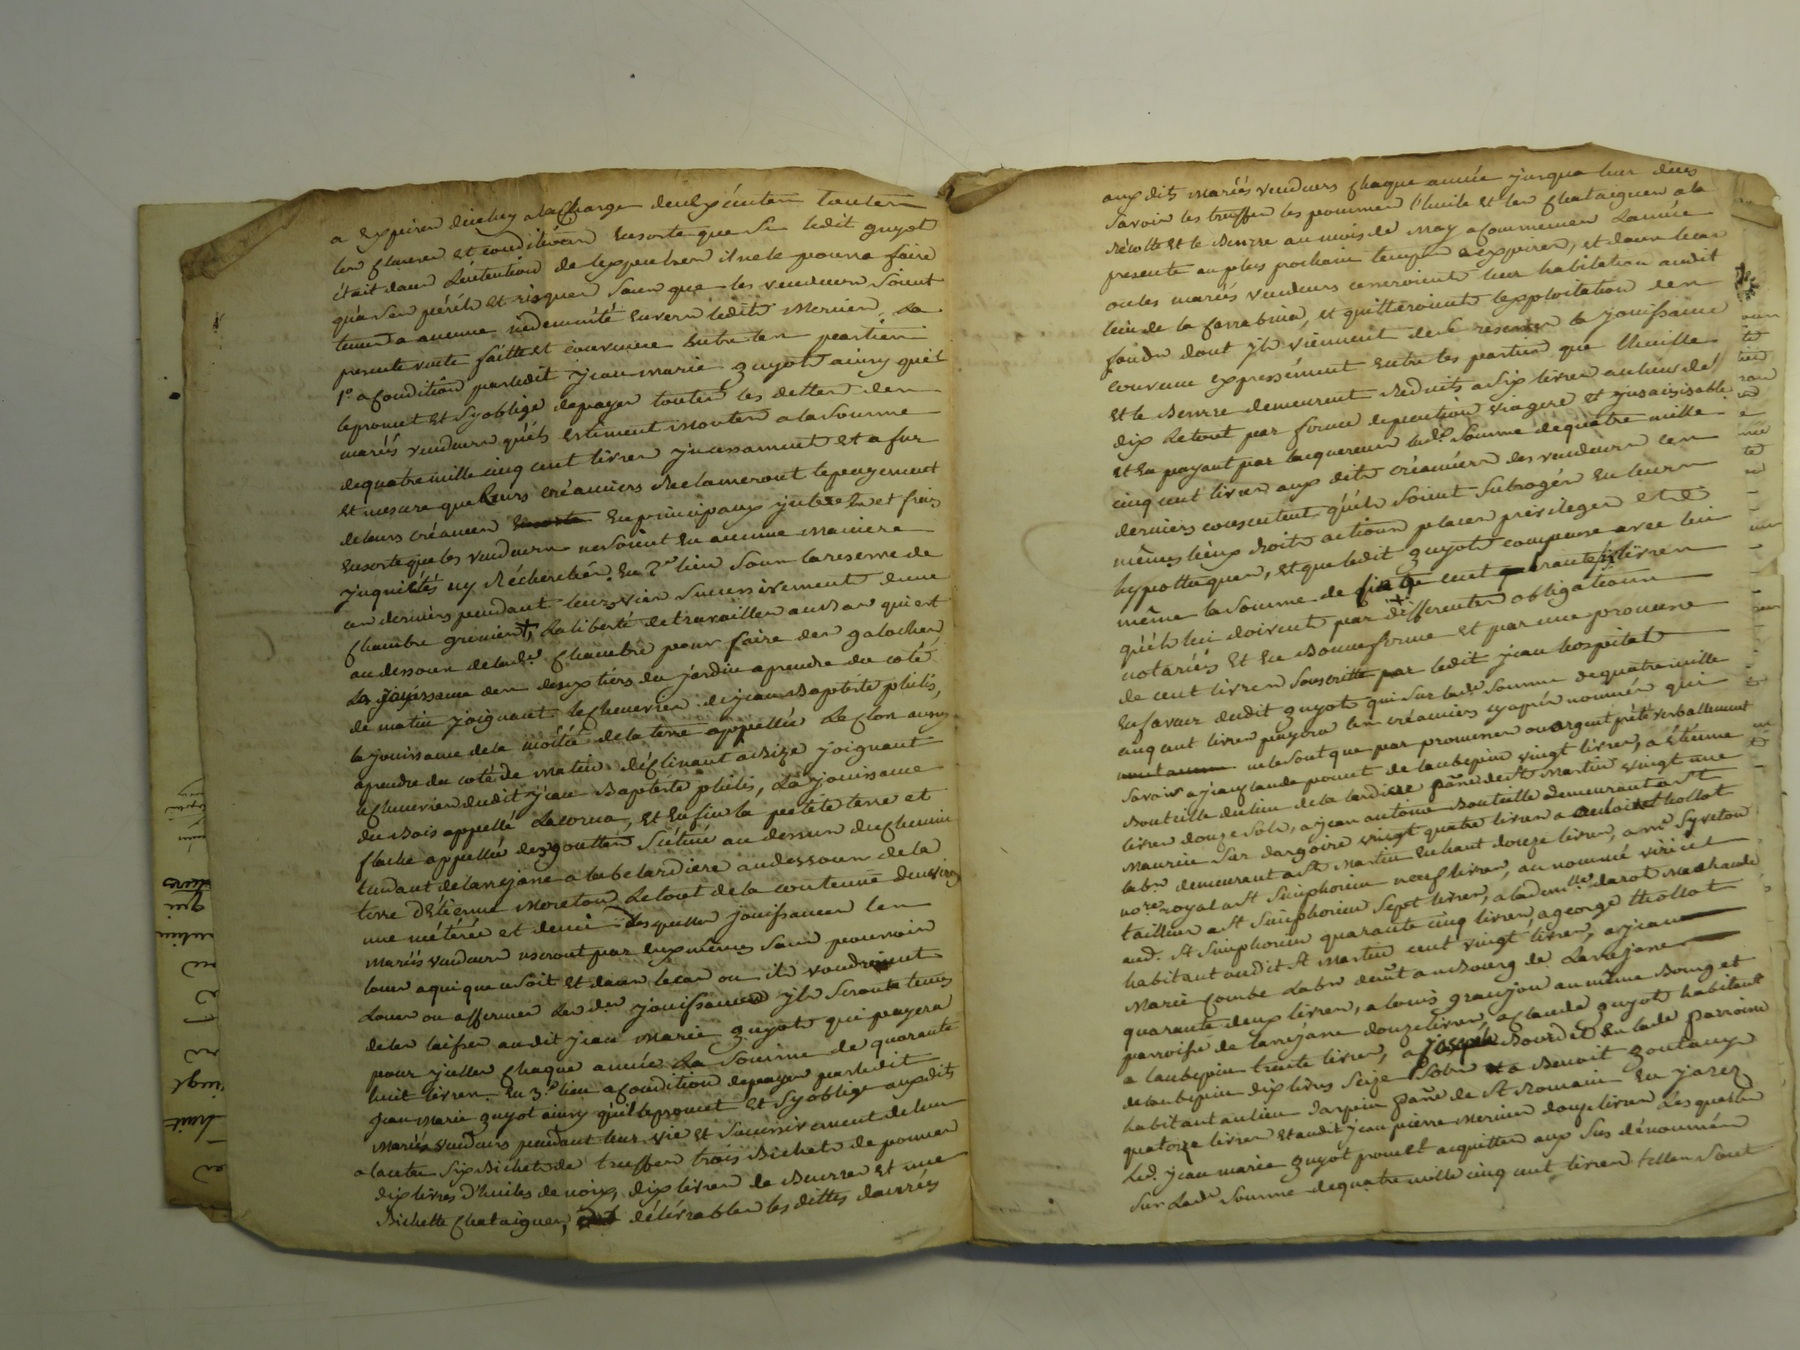 a expirer diceluy ala Charge den Exécuter touttes
les clauses et conditions Ensorte que sy ledit guyot
était dans L'intention de lexpulser il ne le pourra faire
qua Ses périls et risques Sans que les vendeurs soient
tenus a aucune indemnité Envers ledit Mercier. La
presente vente faitte et convenue Entre les parties
1° a Condition par ledit jean marie guyot ainsy quil
le promet et Sy oblige de payer touttes les dettes des
mariés vendeurs quils Estiment monter a la Somme
de quatre mille cinq cent livres jncessament et a fur
et mesure que leurs créanciers Réclameront le payement
de leurs créances En principaux jnterets et frais
Ensorte que les vendeurs ne Soient En aucune maniere
jnquiétés ny Récherchés. En 2e lieu Sous la reserve de
ces derniers pendant leurs vies Successivement d'une
chambre grenier La liberté de travailler au Bas qui est
au dessous de lad. Chambre pour faire des galoches
La jouissance des deux tiers du jardin a prendre du coté
de matin joignant le Chenevier de jean Baptiste philis,
la jouissance de la moitié de la terre appellée Le Clos aussy
a prendre du coté de matin déclinant a bize joignant
le chenevier dudit jean Baptiste philis, La jouissance
du Bois appellé Lacorna, et Enfin la petite terre et
flache appellée desgouttes Scituée au dessus du chemin
tendant de larejane a la belardiere au dessous de la
terre d'Etienne Moreton Le tout de la contenue denviron
une méterée et demi Desquelles jouissances les
Mariés vendeurs useront par Eux mêmes Sans pouvoir
louer a qui que ce Soit et dans le cas ou ils voudroient
Louer ou affermer Lesd. jouissances jls Seront tenus
de les laisser audit jean Marie guyot qui payera
pour jcelles chaque année La Somme de quarante
huit livres. En 3e lieu a Condition de payer par ledit
jean Marie guyot ainsy quil le promet Et Sy oblige auxdits
Mariés vendeurs pendant leur vie et Successivement de leur
a lautre Six Bichets de truffes trois Bichets de pommes
dix livres d'huiles de noix, dix livres de Beurre et une
Bichette chataignes, délivrables les dittes danrées
aux dits mariés vendeurs chaque année jusqua leur décès
Savoir les truffes les pommes l'huile et les chataignes a la
Récolte et le Beurre au mois de May a Commencer L'année
presente au plus prochain temps a expirer, et dans le cas
ou les mariés vendeurs cesseroient leur habitation audit
lieu de la et quitteroient lexploitation des
fonds dont jls viennent de Se reserver la jouissance
convenu expressément Entre les parties que l'huille
et le Beurre demeurent Réduits a Six livres au lieu de
dix Le tout par forme de pention viagere et jnsaisissable
Et En payant par lacquereur lad. Somme de quatre mille
cinq cent livres aux dits créanciers des vendeurs ces
derniers consentent quils Soient Subrogés En leurs
mêmes lieux droits actions places privileges et
hypotheques, et que ledit guyot compense avec lui
même la Somme de cent quarante livres
quils lui doivent par differentes obligations
notariés et En Bonne forme et par une promesse
de cent livres Souscritte par ledit jean hospital
En faveur dudit guyot qui Sur lad. Somme de quatre mille
cinq cent livres payera les créanciers cy après nommés qui
ne le Sont que par promesses ou argent prêté verballement
Savoir a jean ponset de laubepin vingt livres, a Etienne
Bouteille du lieu de la lardiere parse de St Martin vingt une
livres douze Sols, a jean antoine Bouteille demeurant a St
Maurice Sur dargoire vingt quatre livres a thollot
labr. demeurant a St Martin En haut douze livres, a mr Syveton
nore. royal a St Simphorien neuf livres, au nommé viricel
tailleur a St Simphorien Sept livres, a la demlle darot marchande
aud. St Simphorien quarante cinq livres, a george thollot
habitant audit St Martin cent vingt livres, a jean
Marie Combe Labr demt au Bourg de Larejane
quarante deux livres, a louis granjon au même Bourg et
parroisse de larrejane douze livres, a claude guyot habitant
a laubepin trente livres, a joseph Bourdet En lad. parroisse
de laubepin dix livres Seize Sols a Benoit Zoutaux
habitant au lieu parse de St Romain En jarez
quatorze livres Et audit jean pierre Mercier douze livres Lesquelles
Led. jean marie guyot promet acquitter aux Sus dénommés
Sur Lad. Somme de quatre mille cinq cent livres telles Sont